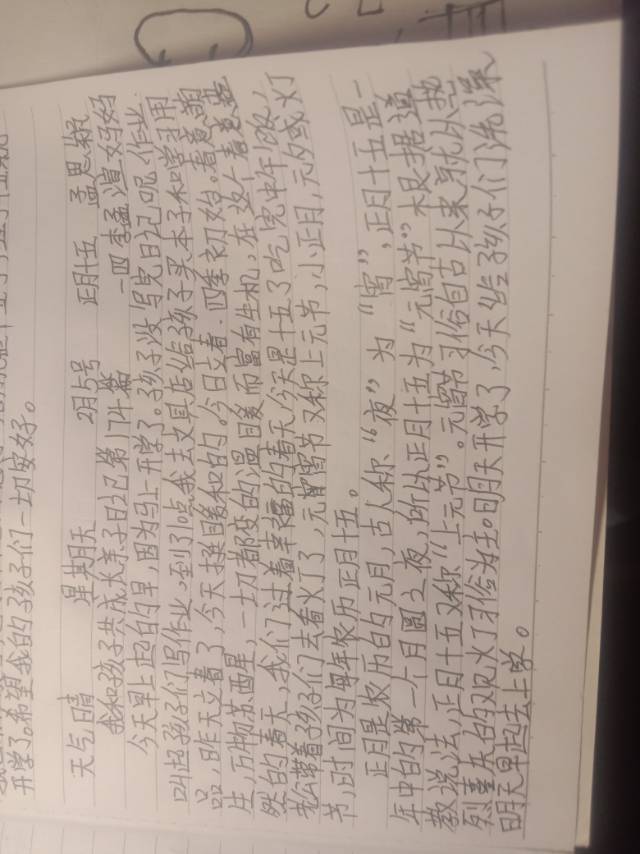 开学了。希望我的孩子们一切安好。
天气晴 星期天 2月5号 正月十五 孟思颖
我和孩子共成长亲子日记第174篇 一四李孟渲妈妈
今天早上起的早,因为马上开学了。孩子没写完日记呢,作业
叫起孩子们写作业。到了10点我去文具店给孩子买本子和学习用
品,昨天立春了,今天挺暖和的。今日立春.四季初始。春意萌
生,万物苏西星,一切都变的温暖而富有生机,在这个春意盎
然的春天,我们过着幸福的春天,今天是十五了吃完中午饭,
我带着孩子们去看火丁了,元宵节又称上元节,小正月,元夕或火丁
节,时间为每年农历正月十五。
正月是农历的元月,古人称“夜”为“宵”,正月十五是一
年中的第一个月圆之夜,所以正月十五为“元宵节”根据道
教说法,正月十五又称“上元节”。元宵节习俗自古以来就以热
烈喜庆的观火丁习俗为主。明天开学了,今天给孩子们洗洗澡
明天早起去上学。